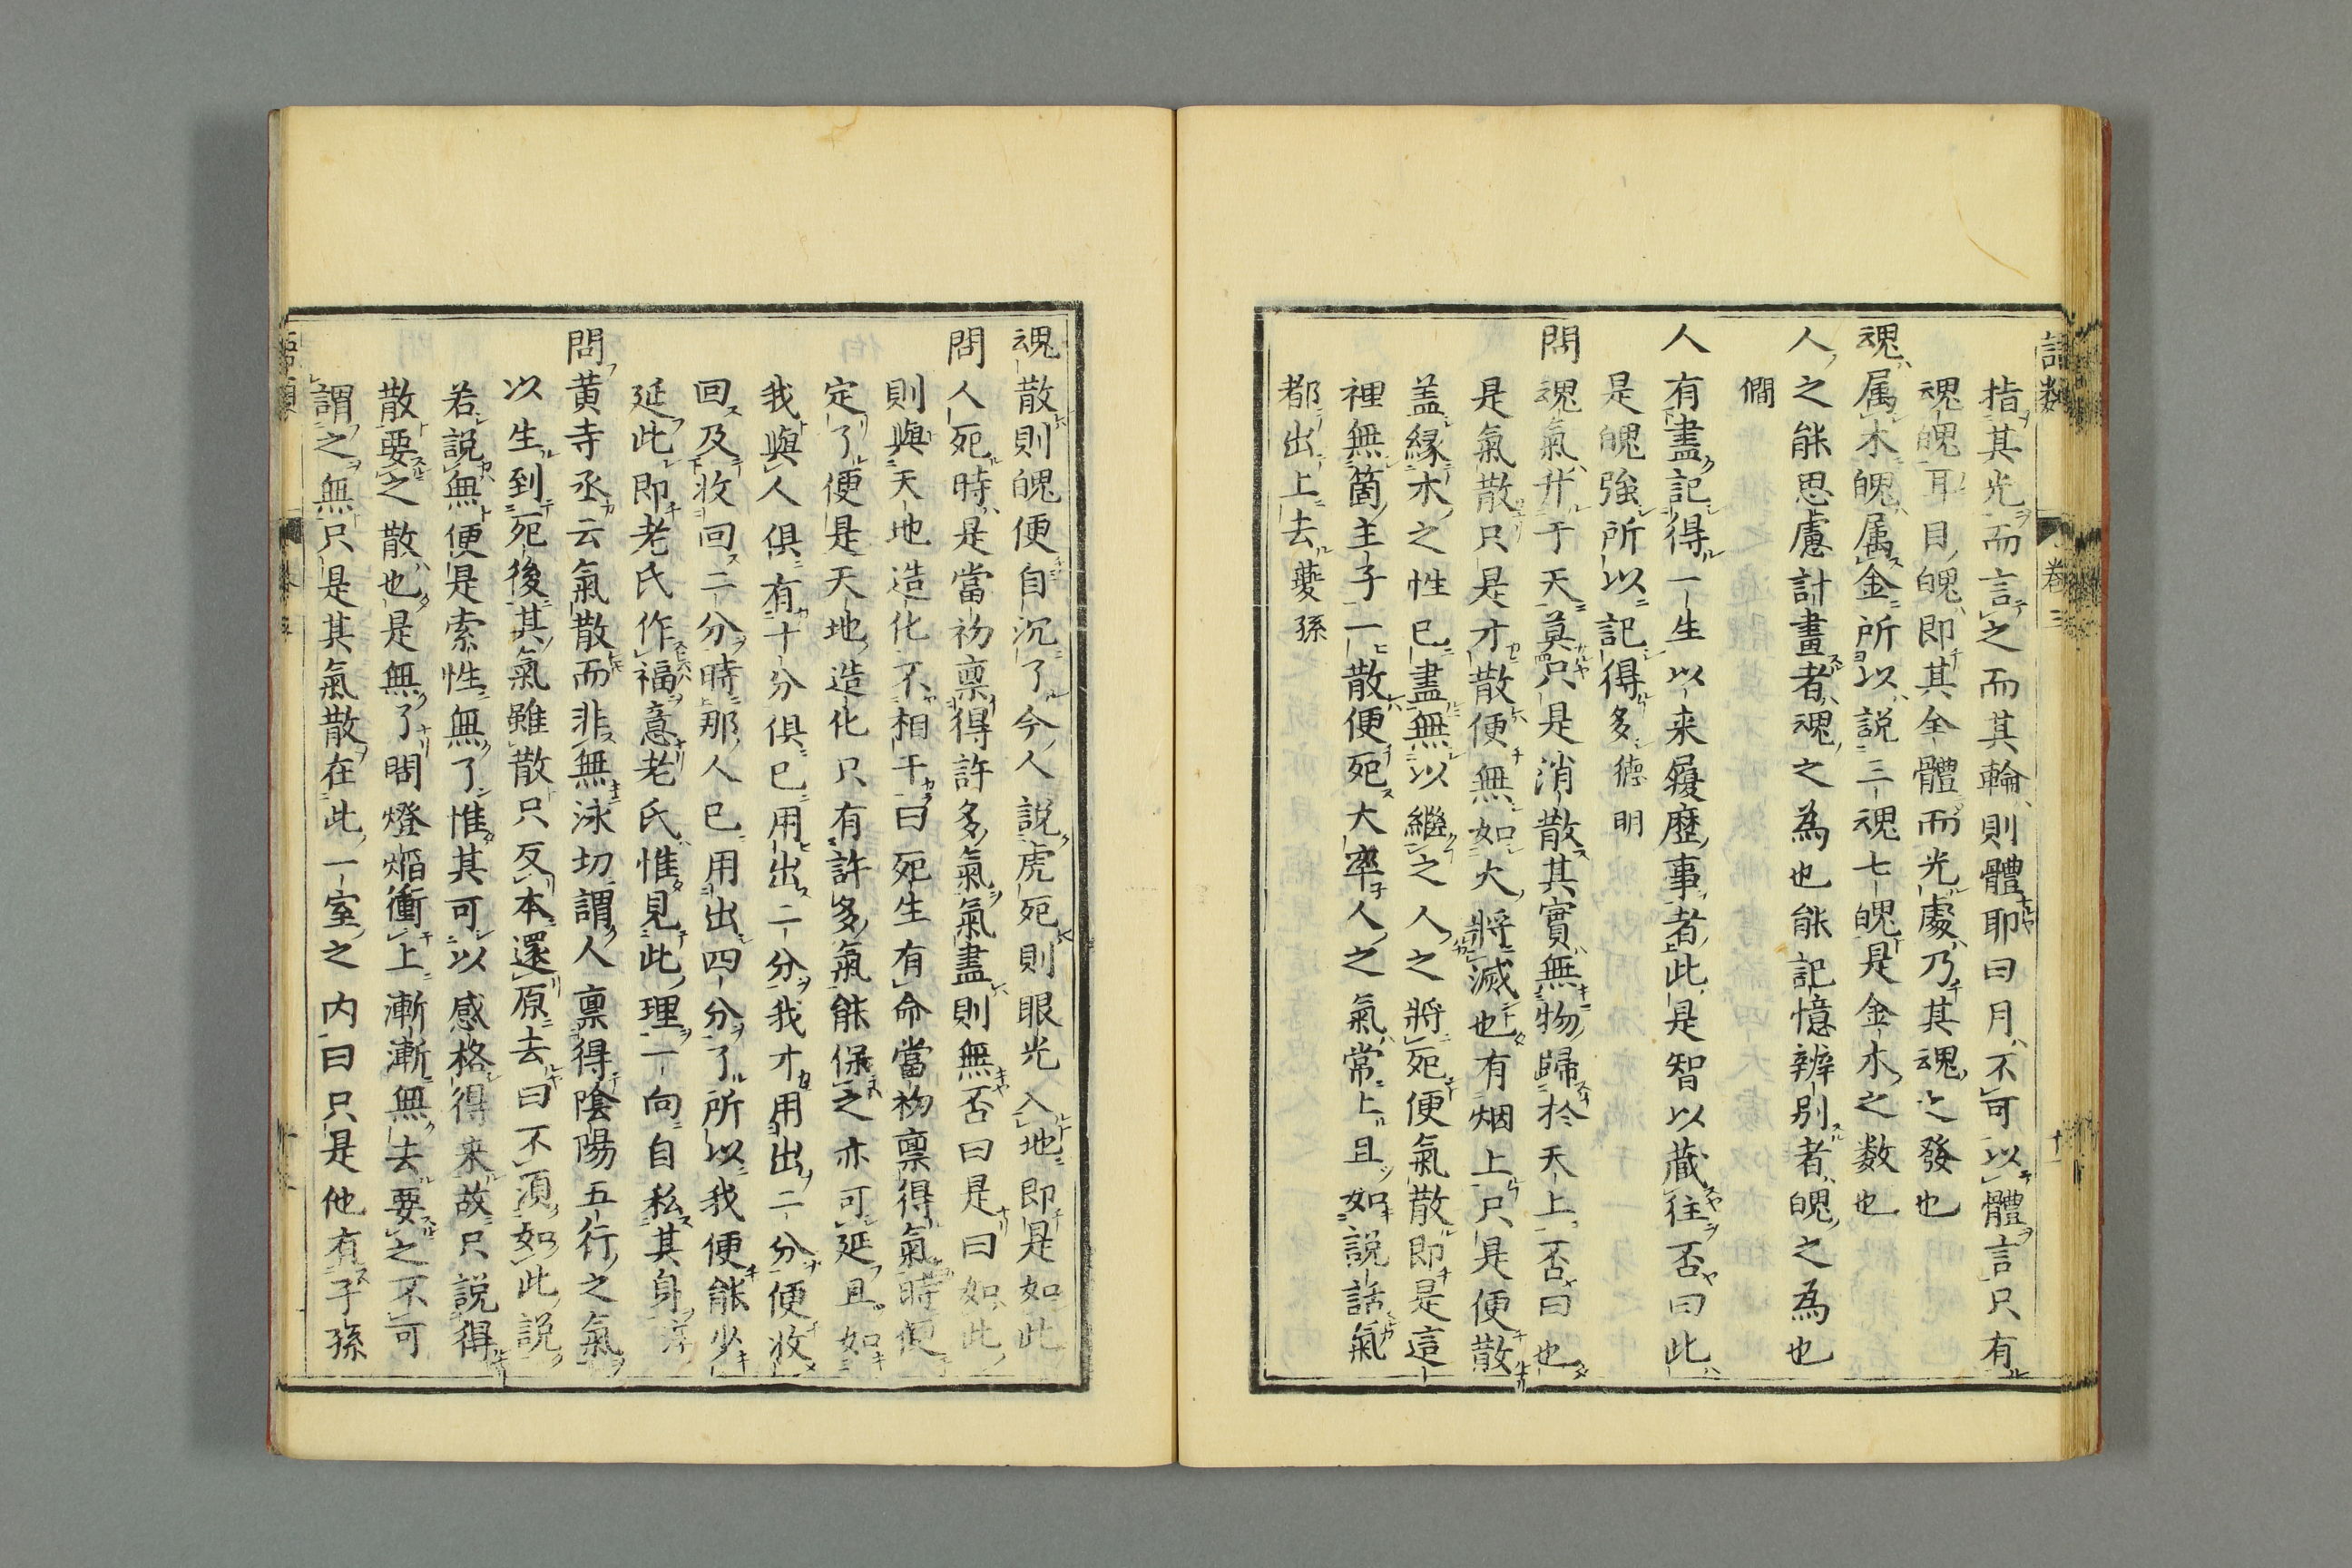 指其光而言之而其輪則體耶曰月不可以體言只有
魂魄耳目魄即其全體而光處乃其魂之發也
魂属木魄属金所以説三魂七魄是金木之数也
人之能思慮計畫者魂之為也能記憶辨別者魄之為也
僩
人有盡記得一生以来履歷事者此是智以蔵往否曰此
是魄強所以記得多德明
問魂氣升于天莫只是消散其實無物歸於天上否曰也
是氣散只是才散便無如火將滅也有烟上只是便散
盖緣木之性已盡無以繼之人之將死便氣散即是這
裡無箇主子一散便死大率人之氣常上且如説話氣
都出上去夔孫
魂散則魄便自沉了今人説虎死則眼光入地即是如此
問人死時是當初禀得許多氣氣盡則無否曰是曰如此
則與天地造化不相干曰死生有命當初禀得氣時便
定了便是天地造化只有許多氣能保之亦可延且如
我與人俱有十分俱已用出二分我才用出二分便收
回及收回二分時那人已用出四分了所以我便能少
延此即老氏作福意老氏惟見此理一向自私其身淳
問黄寺丞云氣散而非無泳切謂人禀得陰陽五行之氣
以生到死後其氣雖散只反本還原去曰不須如此説
若説無便是索性無了惟其可以感格得来故只説得
散要之散也是無了問燈焔衝上漸漸無去要之不可
謂之無只是其氣散在此一室之内曰只是他有子孫